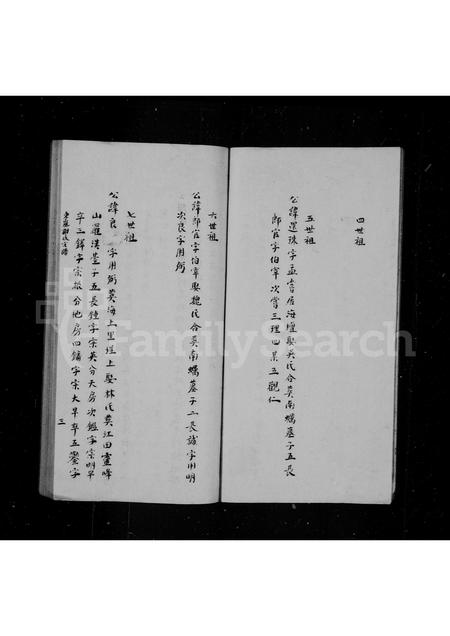 四世祖
五世祖
公諱還珠字孟嘗居海壇娶吳氏合葬南蠣墓子五長
郎官字伯寧次嘗三理四杲五觀仁
六世祖
公諱郎官字伯寧娶魏氏合葬南蠣墓子二長誠字用明
次良字用弼
七世祖
公諱良字用弼葬海上里埕上娶林氏葬江田靈峰
山羅漢臺子五長鍾字宗英分天房次鑑字宗明早
卒三鐸字宗振分地房四鏞字宗大早卒五鑾字
三
FamilySearch